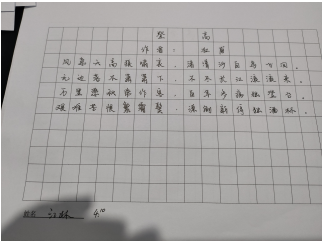 登高
作者：杜甫
风急天高猿啸哀，渚清沙白鸟飞回，
无边落木萧萧下，不尽长江滚滚来，
万里悲秋常作客，百年多病独登台，
艰难苦恨繁霜鬓，潦倒新停浊酒杯。
4.10